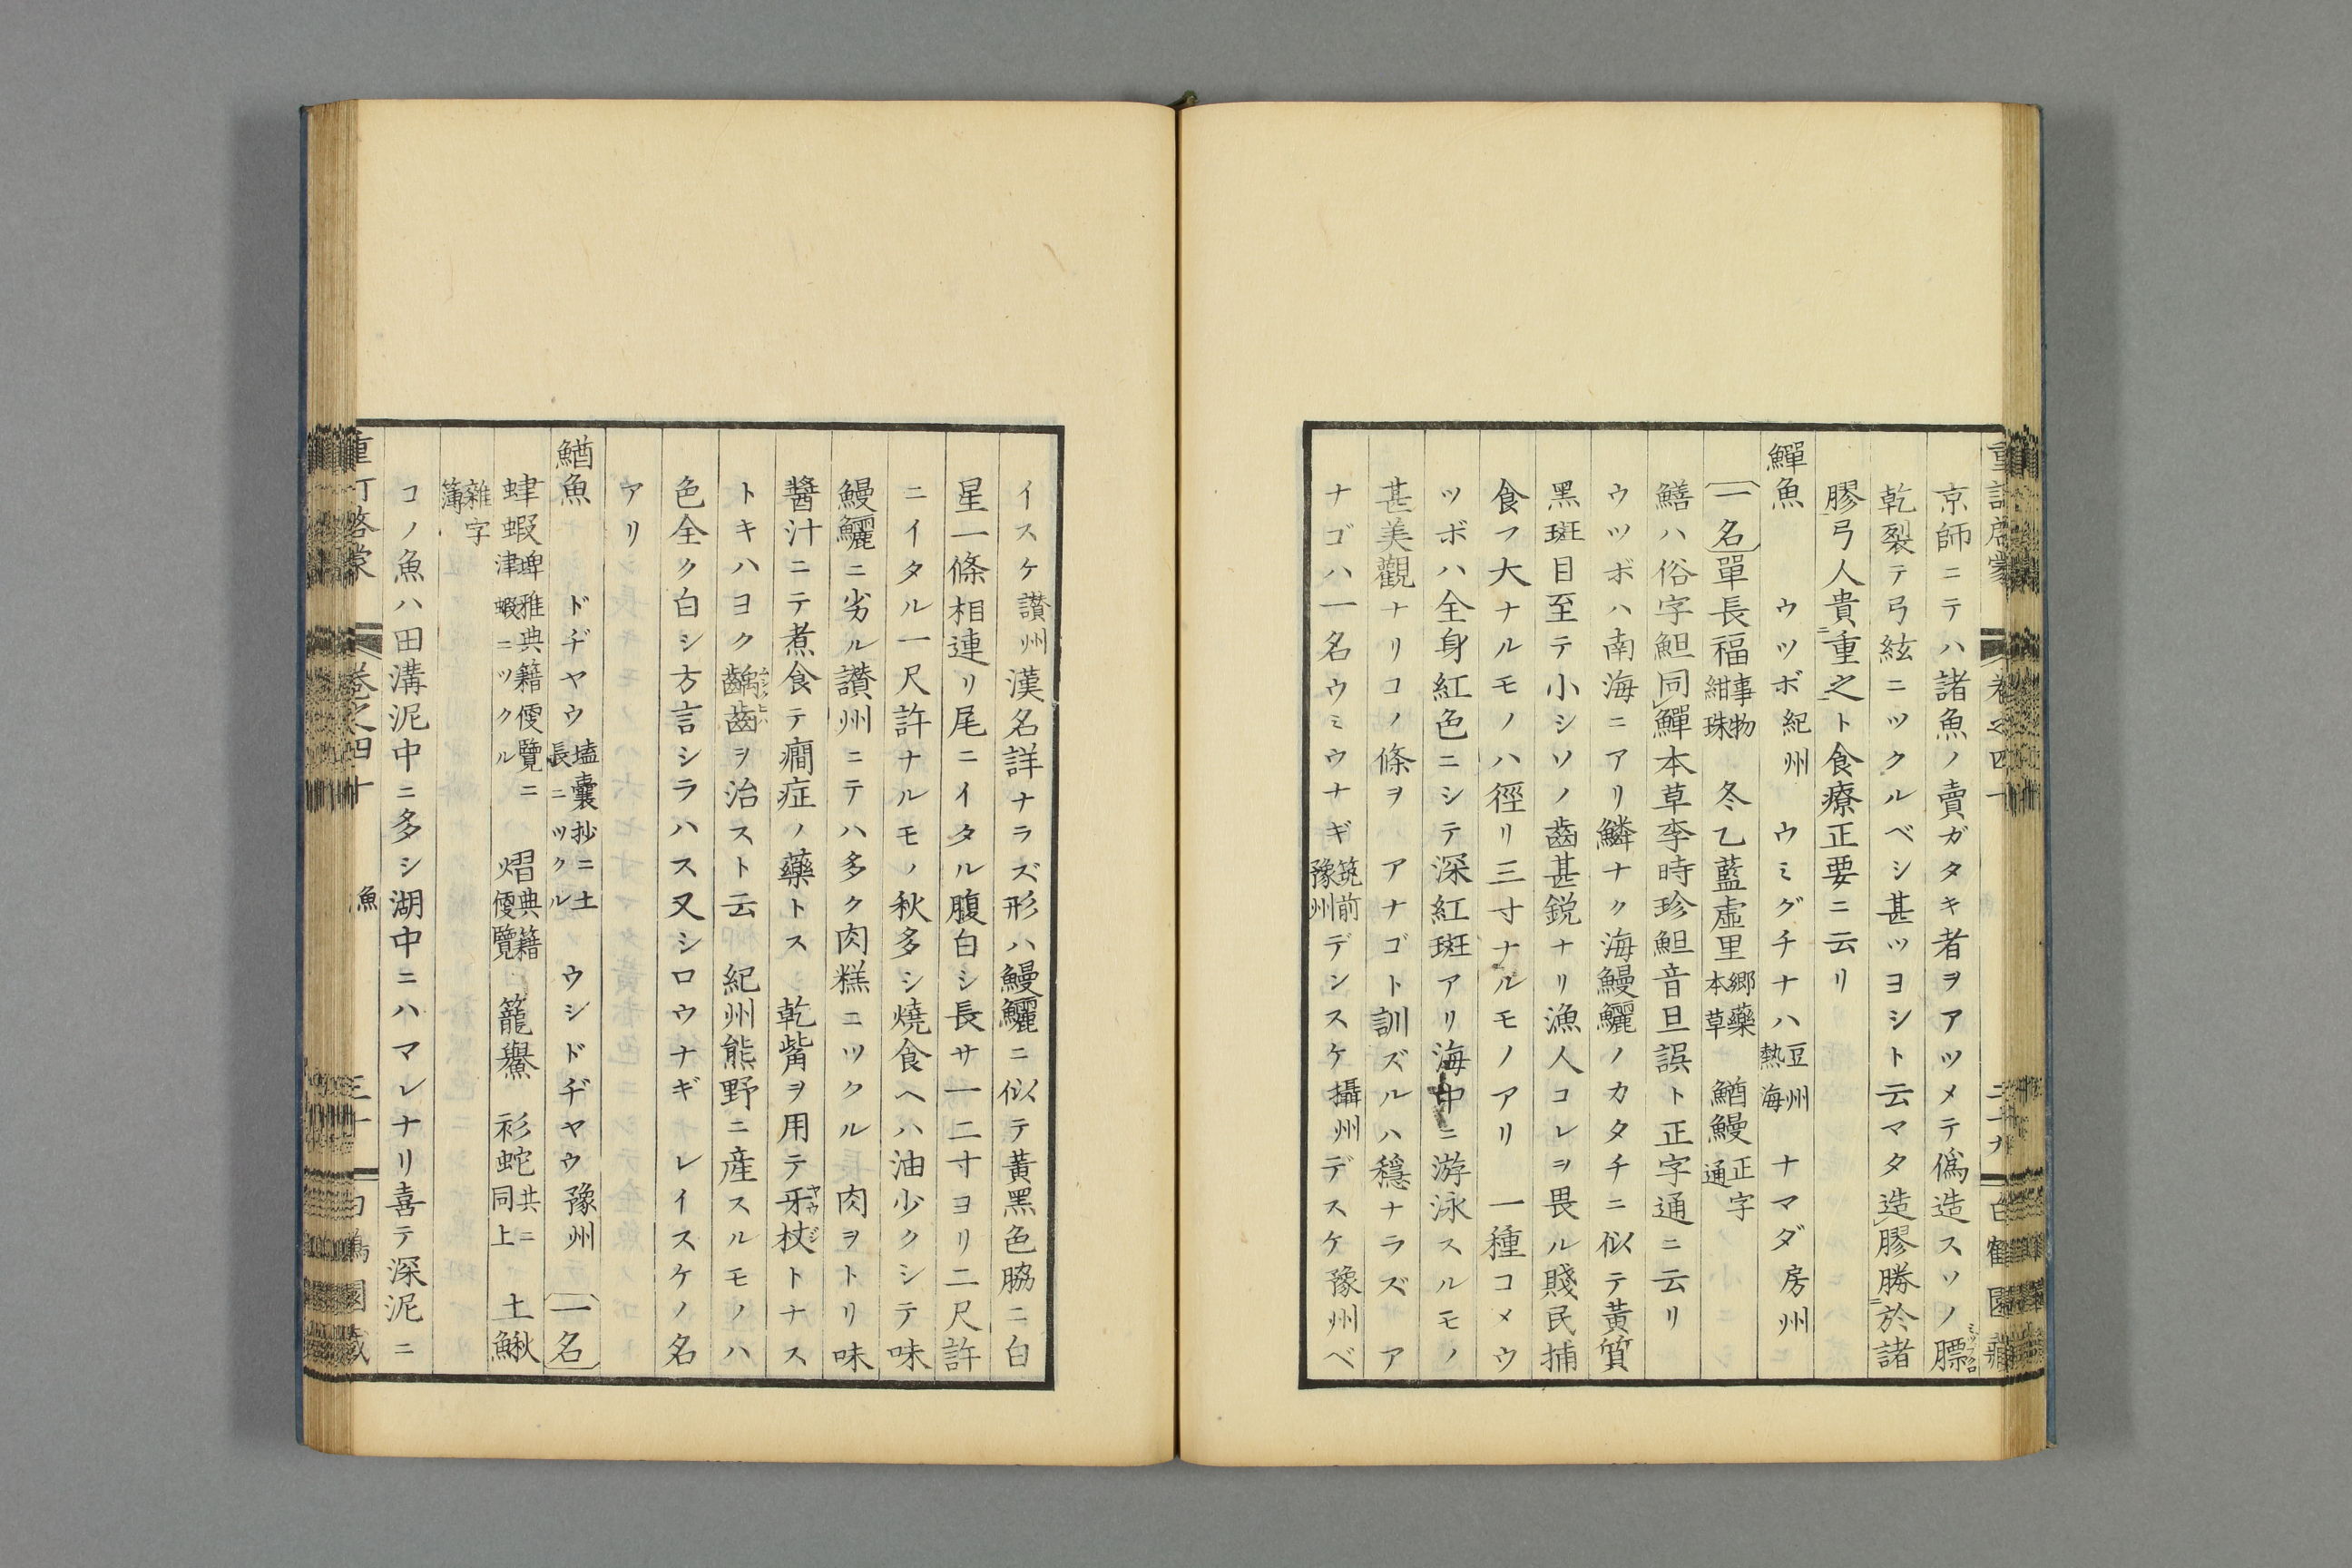 京師ニテハ諸魚ノ賣ガタキ者ヲアツメテ偽造スソノ膘
乾裂テ弓絃ニツクルベシ甚ツヨシト云マタ造膠勝於諸
膠弓人貴重之ト食療正要ニ云リ
鱓魚 ウツボ紀州 ウミグチナハ豆州熱海 ナマダ房州
一名單長福事物紺珠 冬乙藍虛里郷藥本草 鰌鰻正字通
鱔ハ俗字䱇同鱓本草李時珍䱇音旦誤ト正字通ニ云リ
ウツボハ南海ニアリ鱗ナク海鰻鱺ノカタチニ似テ黃質
黑斑目至テ小シソノ齒甚鋭ナリ漁人コレヲ畏ル賤民捕
食フ大ナルモノハ徑リ三寸ナルモノアリ 一種コメウ
ツボハ全身紅色ニシテ深紅斑アリ海中ニ游泳スルモノ
甚美觀ナリコノ條ヲ アナゴト訓ズルハ穩ナラズ ア
ナゴハ一名ウミウナギ筑前豫州デンスケ攝州デスケ豫州ベ
イスケ讃州漢名詳ナラズ形ハ鰻鱺ニ似テ黃黑色脇ニ白
星一條相連リ尾ニイタル腹白シ長サ一二寸ヨリ二尺許
ニイタル一尺許ナルモノ秋多シ燒食ヘハ油少クシテ味
鰻鱺ニ劣ル讃州ニテハ多ク肉糕ニツクル 肉ヲトリ味
醬汁ニテ煮食テ癎症ノ藥トス 乾觜ヲ用テ牙杖トナス
トキハヨク齲齒ヲ治スト云 紀州熊野ニ産スルモノハ
色全ク白シ方言シラハス又シロウナギ レイスケノ名
アリ
鰌魚 ドヂヤウ壒囊抄ニ土長ニツクル ウシドヂヤウ豫州 一名
䖆蝦埤雅典籍便覽ニ津蝦ニツクル 熠典籍便覽 龍鱟 衫蛇共ニ同上 土鰍
雜字簿
コノ魚ハ田溝泥中ニ多シ湖中ニハマレナリ喜テ深泥ニ
卷之四十 魚 三十